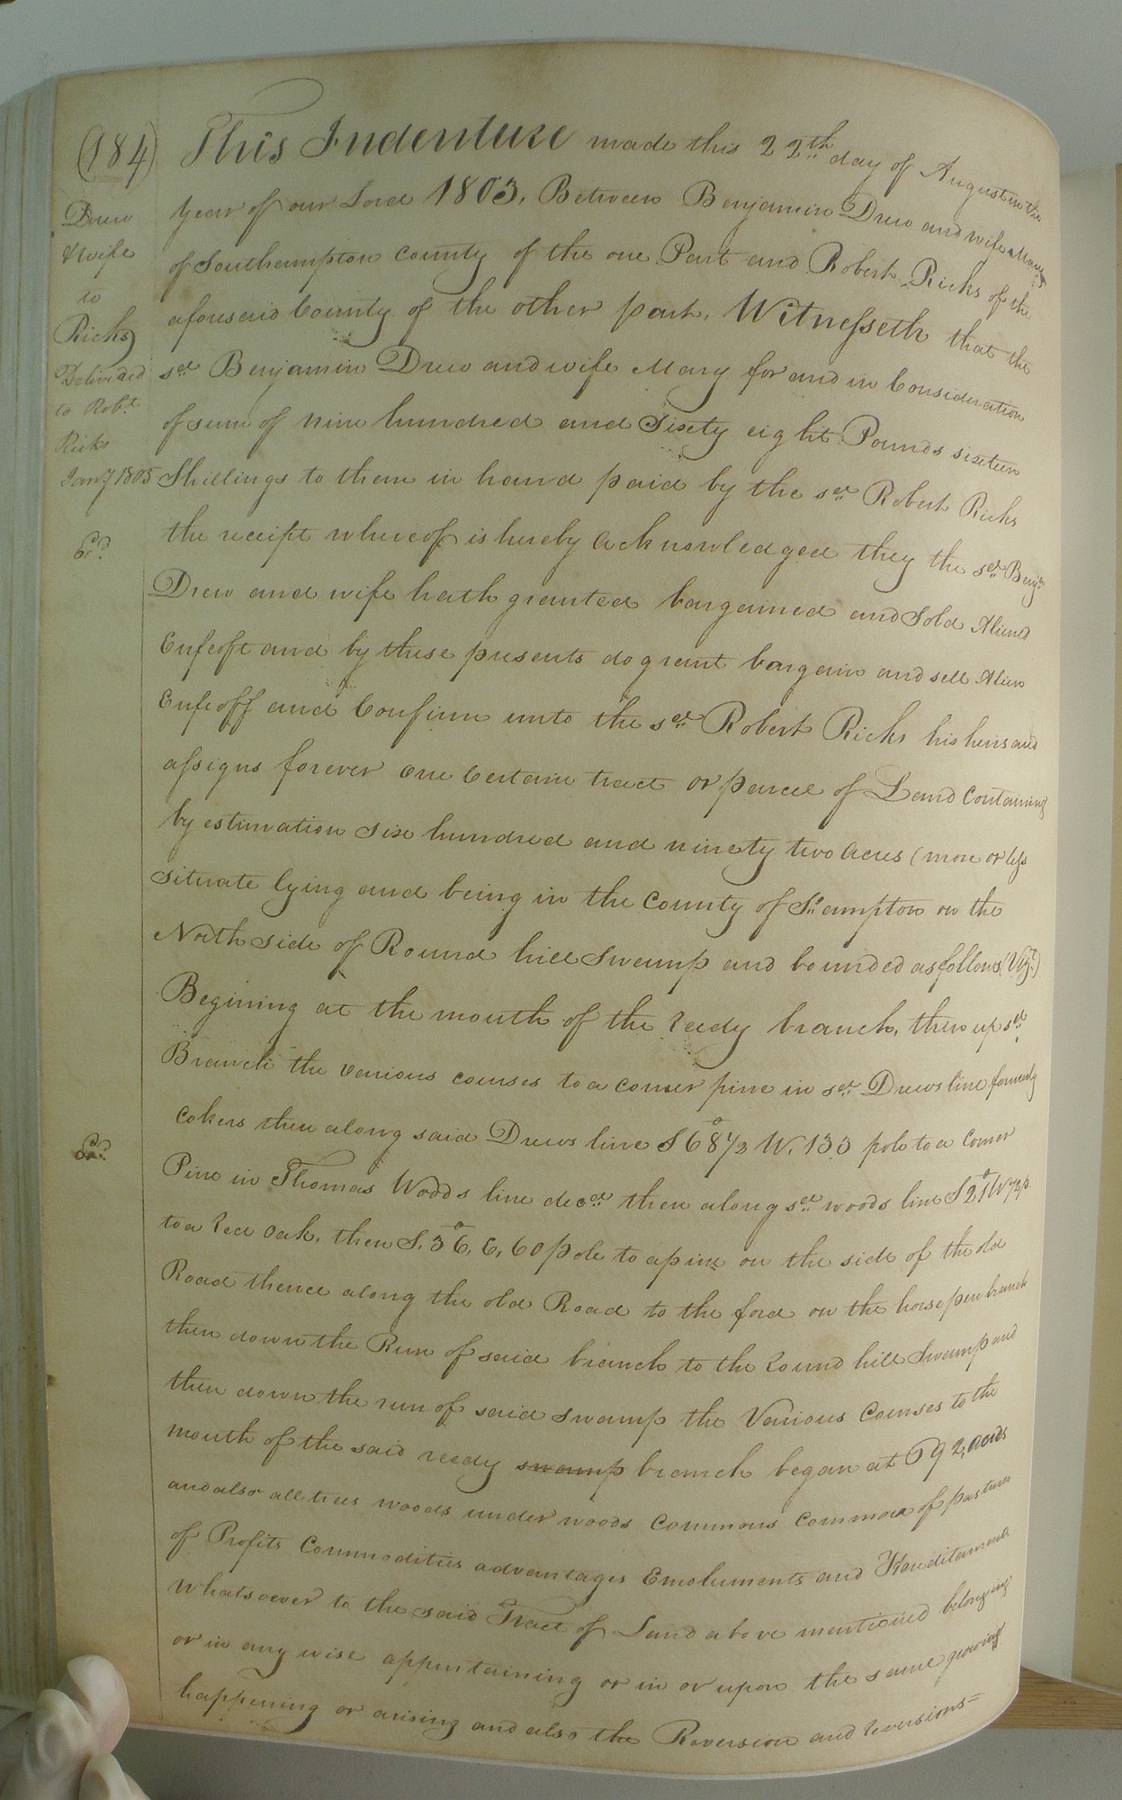 (184) This Indenture made this 22th day of August in the
Drew & wife to Ricks Delivered to Robt. Ricks Jany 1805
Year of our Lord 1803, Between Benjamin Drew and wife Mary
of Southampton County of the one Part and Robert Ricks of the
aforesaid County of the other part, Witnesseth that the
sd Benjamin Drew and wife Mary for and in Consideration
of sum of nine hundred and Sixty eight Pounds sixteen
Shillings to them in hand paid by the sd Robert Ricks
the receipt whereof is hereby acknowledged they the sd Benjn
Drew and wife hath granted bargained and Sold Aliend
Enfeoft and by these presents do grant bargain and sell Alien
Enfeoff and Confirm unto the sd Robert Ricks his heirs and
assigns forever one Certain tract or parcel of Land Containing
by estimation six hundred and ninety two Acres (more or less
situate lying and being in the County of So.ampton on the
North side of Round hill Swamp and bounded as follows (Vizt)
Begining at the mouth of the reedy branch, then up sd
Branch the various courses to a corner pine in sd Drews line formerly
Cokers then along said Drews line S 68 1/2 W, 133 pole to a Corner
Pine in Thomas Woods line decd then along sd woods line S 21 W
to a Red Oak, then S, 36, E, 60 pole to a pine on the side of the old
Road thence along the old Road to the ford on the horsepen branch
then down the Run of said branch to the round hill Swamp and
then down the run of said swamp the Various Courses to the
mouth of the said reedy swamp branch began at 692 acres
and also all trees woods under woods Commons Common of pasture
of Profits Commodities advantages Emoluments and Hereditaments
Whatsoever to the said Tract of Land above mentioned belonging
or in any wise appertaining or in or upon the same growing
happening or arising and also the Reversion and reversions=